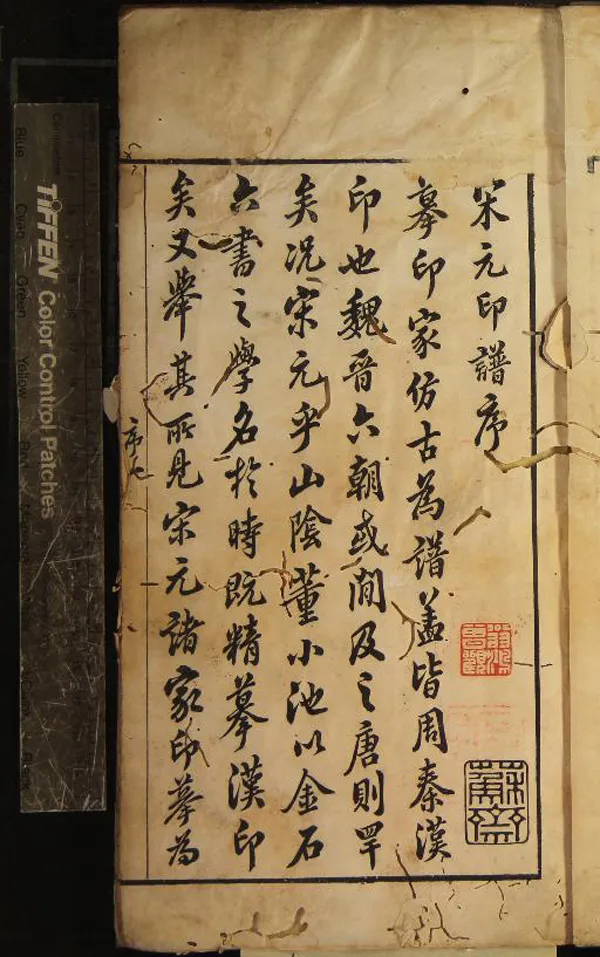 宋元印譜序
摹印家仿古為譜盖皆周秦漢
印也魏晉六朝或閒及之唐則罕
矣况宋元乎山陰董小池以金石
六書之學名於時既精摹漢印
矣又舉其所見宋元諸家印摹為
序
蘇齋
TIFFEN Color Control Patches
Blue
Cyan
Green
Yellow